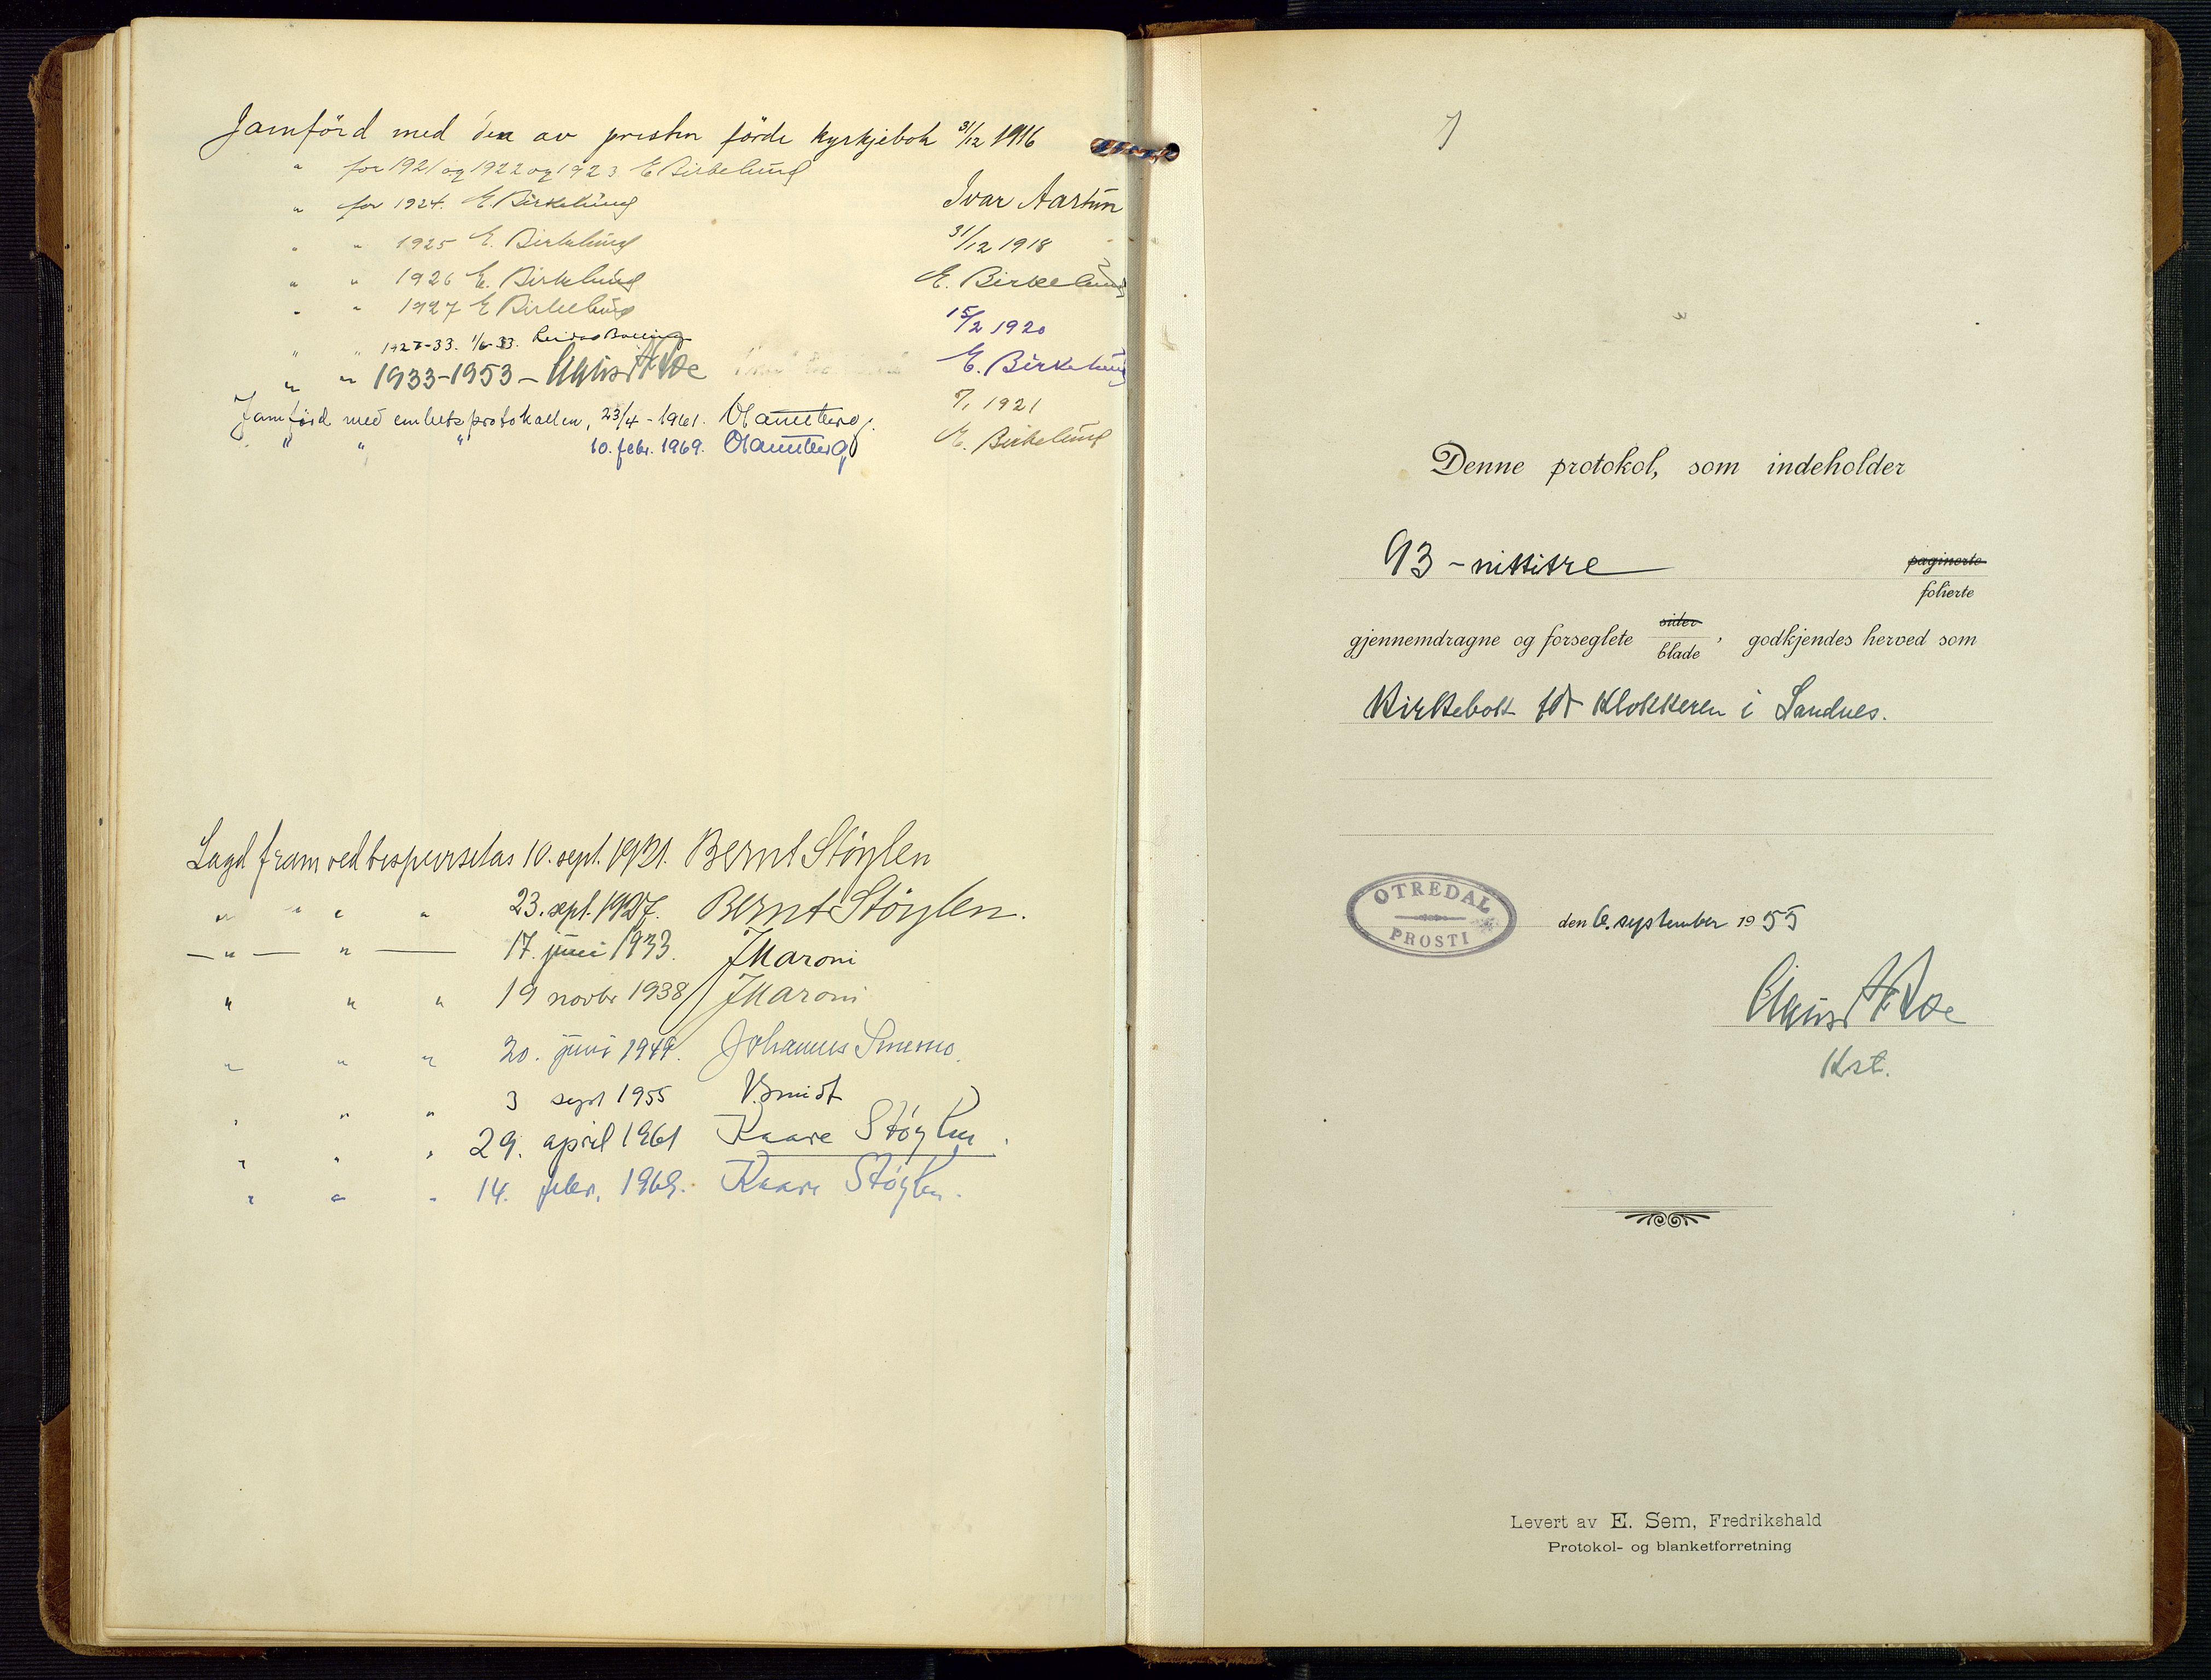 Jamförd med den av presten förde kyrkjebok 31/12 1916
" for 1921 og 1922 og 1923 E Birkelund
Ivar Aartun
" for 1924. E. Birkelund
31/12 1918
" " 1925 E. Birkelund
E. Birkelund
" " 1926 E. Birkelund
15/2 1920
" " 1927 E Birkelund
E. Birkelund
" " 1927-33. 1/6-33.
" " 1933-1953 –
7/1 1921
E. Birkelund
Jamførd med embetsprotokollen, 23/4 - 1961.
" " " 10. febr. 1969.
Lagd fram ved bispevisitas 10. sept. 1921. Bernt Støylen
" " " " 23. sept. 1927. Bernt Støylen.
— " — " — 17. juni 1933. J Maroni
" " " 19 novbr 1938 J Maroni
" " " 20. juni 1949. Johannes Smemo.
" " " 3 sept 1955 V. Smidt
" " " 29. april 1961 Kaare Støylen.
" " " 14. febr. 1969. Kaare Støylen.
Denne protokol, som indeholder
93 - nittitre paginerte
folierte
gjennemdragne og forseglete sider
blade, godkjendes herved som
Kirkebok for Klokkeren i Sandnes.
OTREDAL
PROSTI
den 6. september 1955
Kst.
Levert av E. Sem, Fredrikshald
Protokol- og blanketforretning